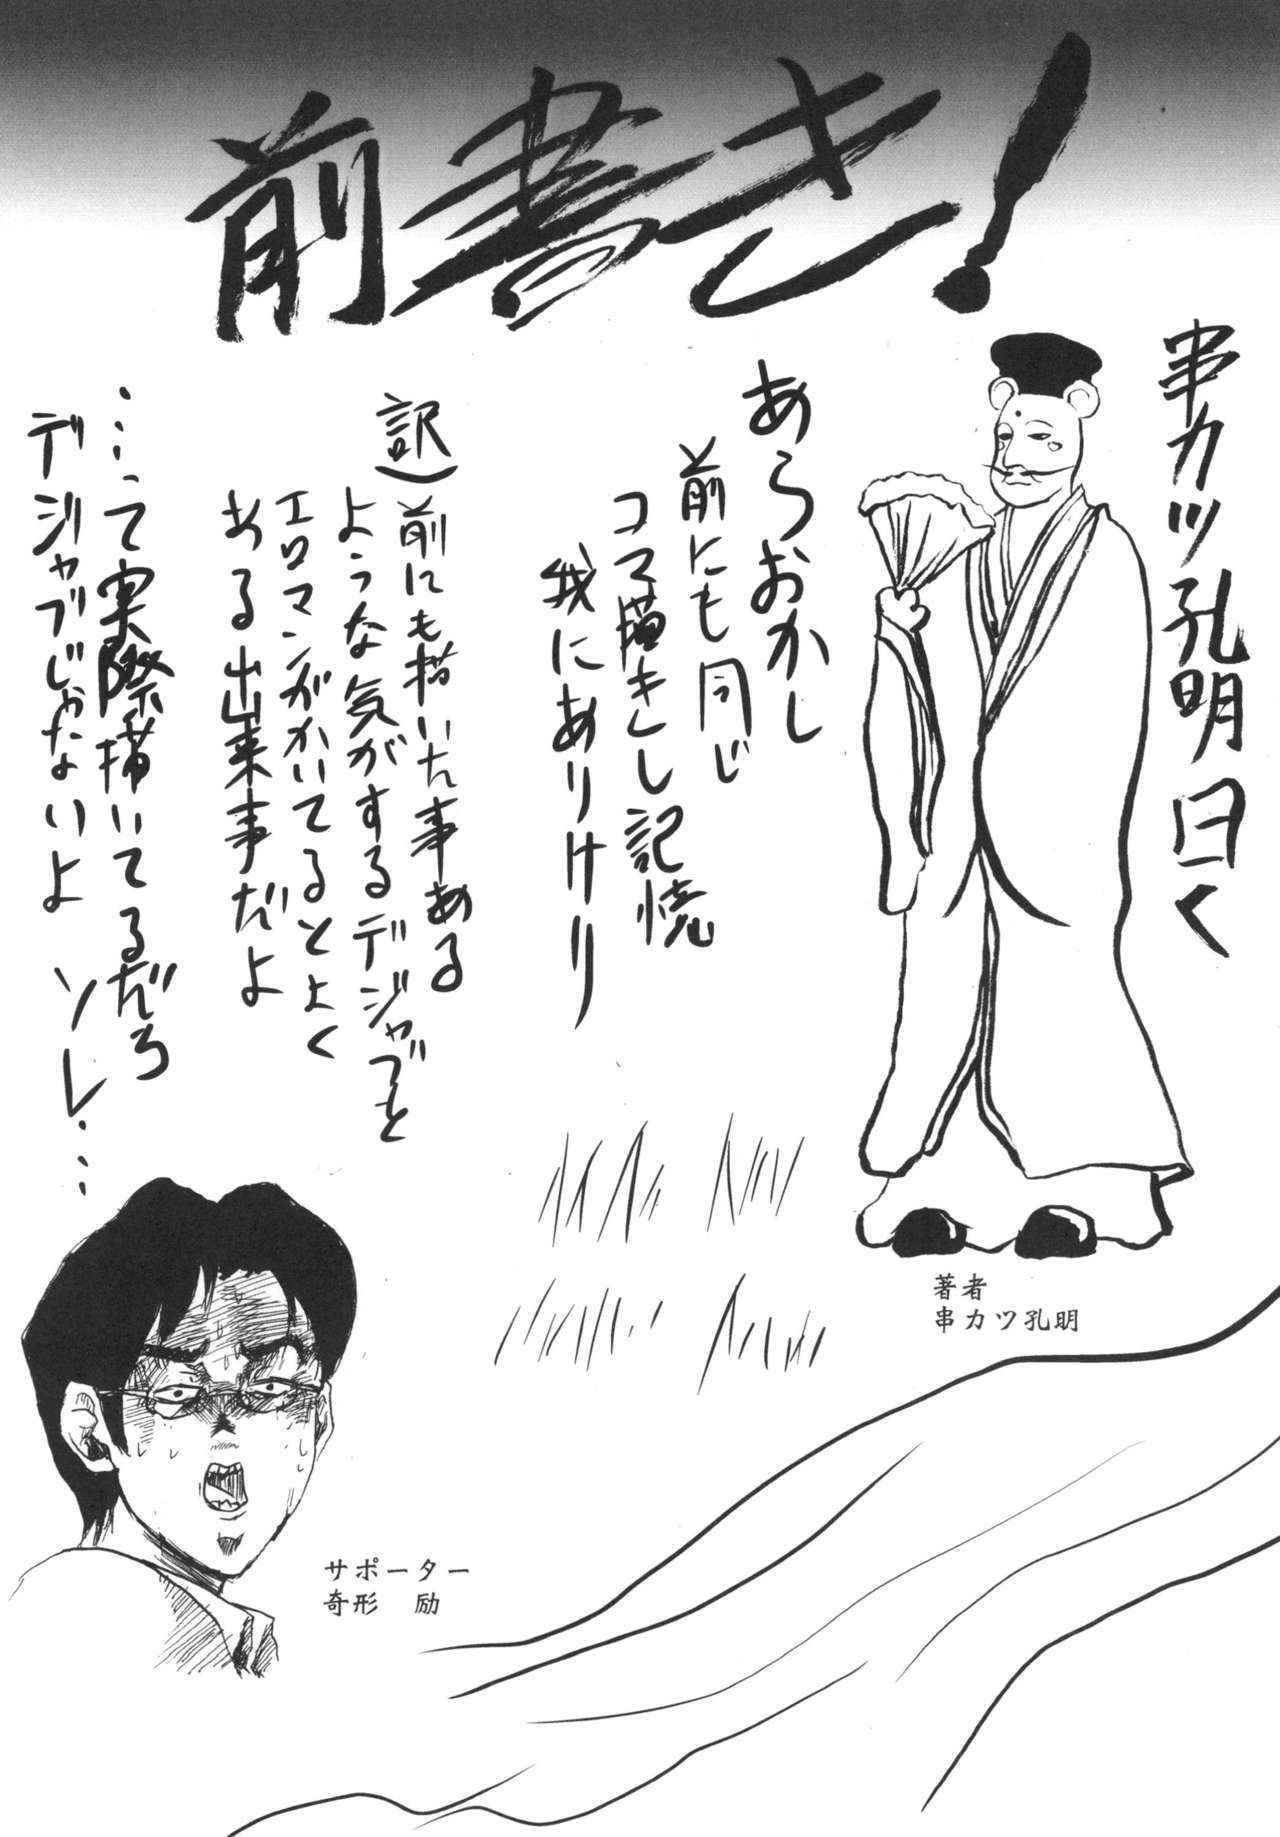 前書き!
串カツ孔明曰く
あらおかし
前にも同じ
コマ描きし記憶
我にありけり
訳)前にも描いた事ある
ような気がするデジャブと
エロマンガかいてるとよく
ある出来事だよ
…って実際描いてるだろ
デジャブじゃないよ ソレ……
著者
串カツ孔明
サポーター
奇形 励